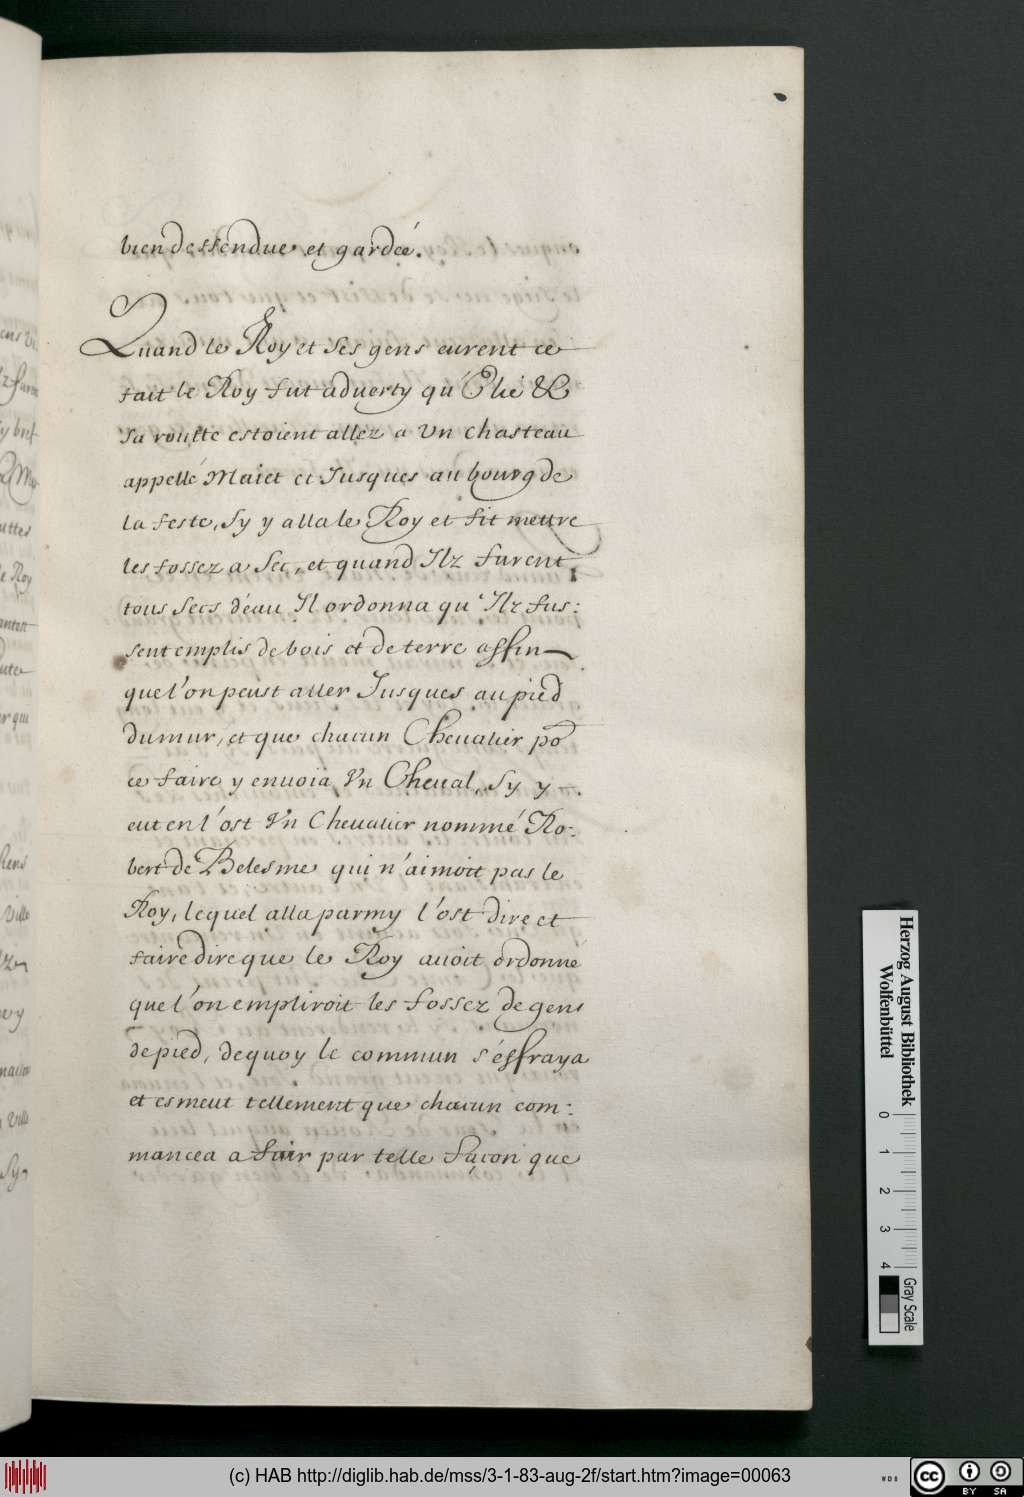 bien deffendue et gardeé.
Quand le Roy et ses gens eurent ce
fait le Roy fut aduerty qu'Elié &
sa routte estoient allez a Vn chasteau
appellé Maiet et Jusques au bourg de
la feste, sy y alla le Roy et fit mettre
les fossez a sec, et quand Ilz furent
tous secs d'eau Il ordonna qu'Ilz fus:
sent emplis de bois et de terre affin
que l'on peust aller Jusques au pied
du mur, et que chacun Cheualier po
ce faire y enuoia Vn Cheual, sy y
eut en l'ost Vn Cheualier nommé Ro:
bert de Belesme qui n'aimoit pas le
Roy, lequel alla parmy l'ost dire et
faire dire que le Roy auoit ordonné
que l'on empliroit les fossez de gens
de pied, de quoy le commun s'effraya
et esmeut tellement que chacun com:
mancea a fuir par telle façon que
Herzog August Bibliothek
Wolfenbüttel
0 1 2 3 4
Gray Scale
(c) HAB http://diglib.hab.de/mss/3-1-83-aug-2f/start.htm?image=00063
cc BY SA